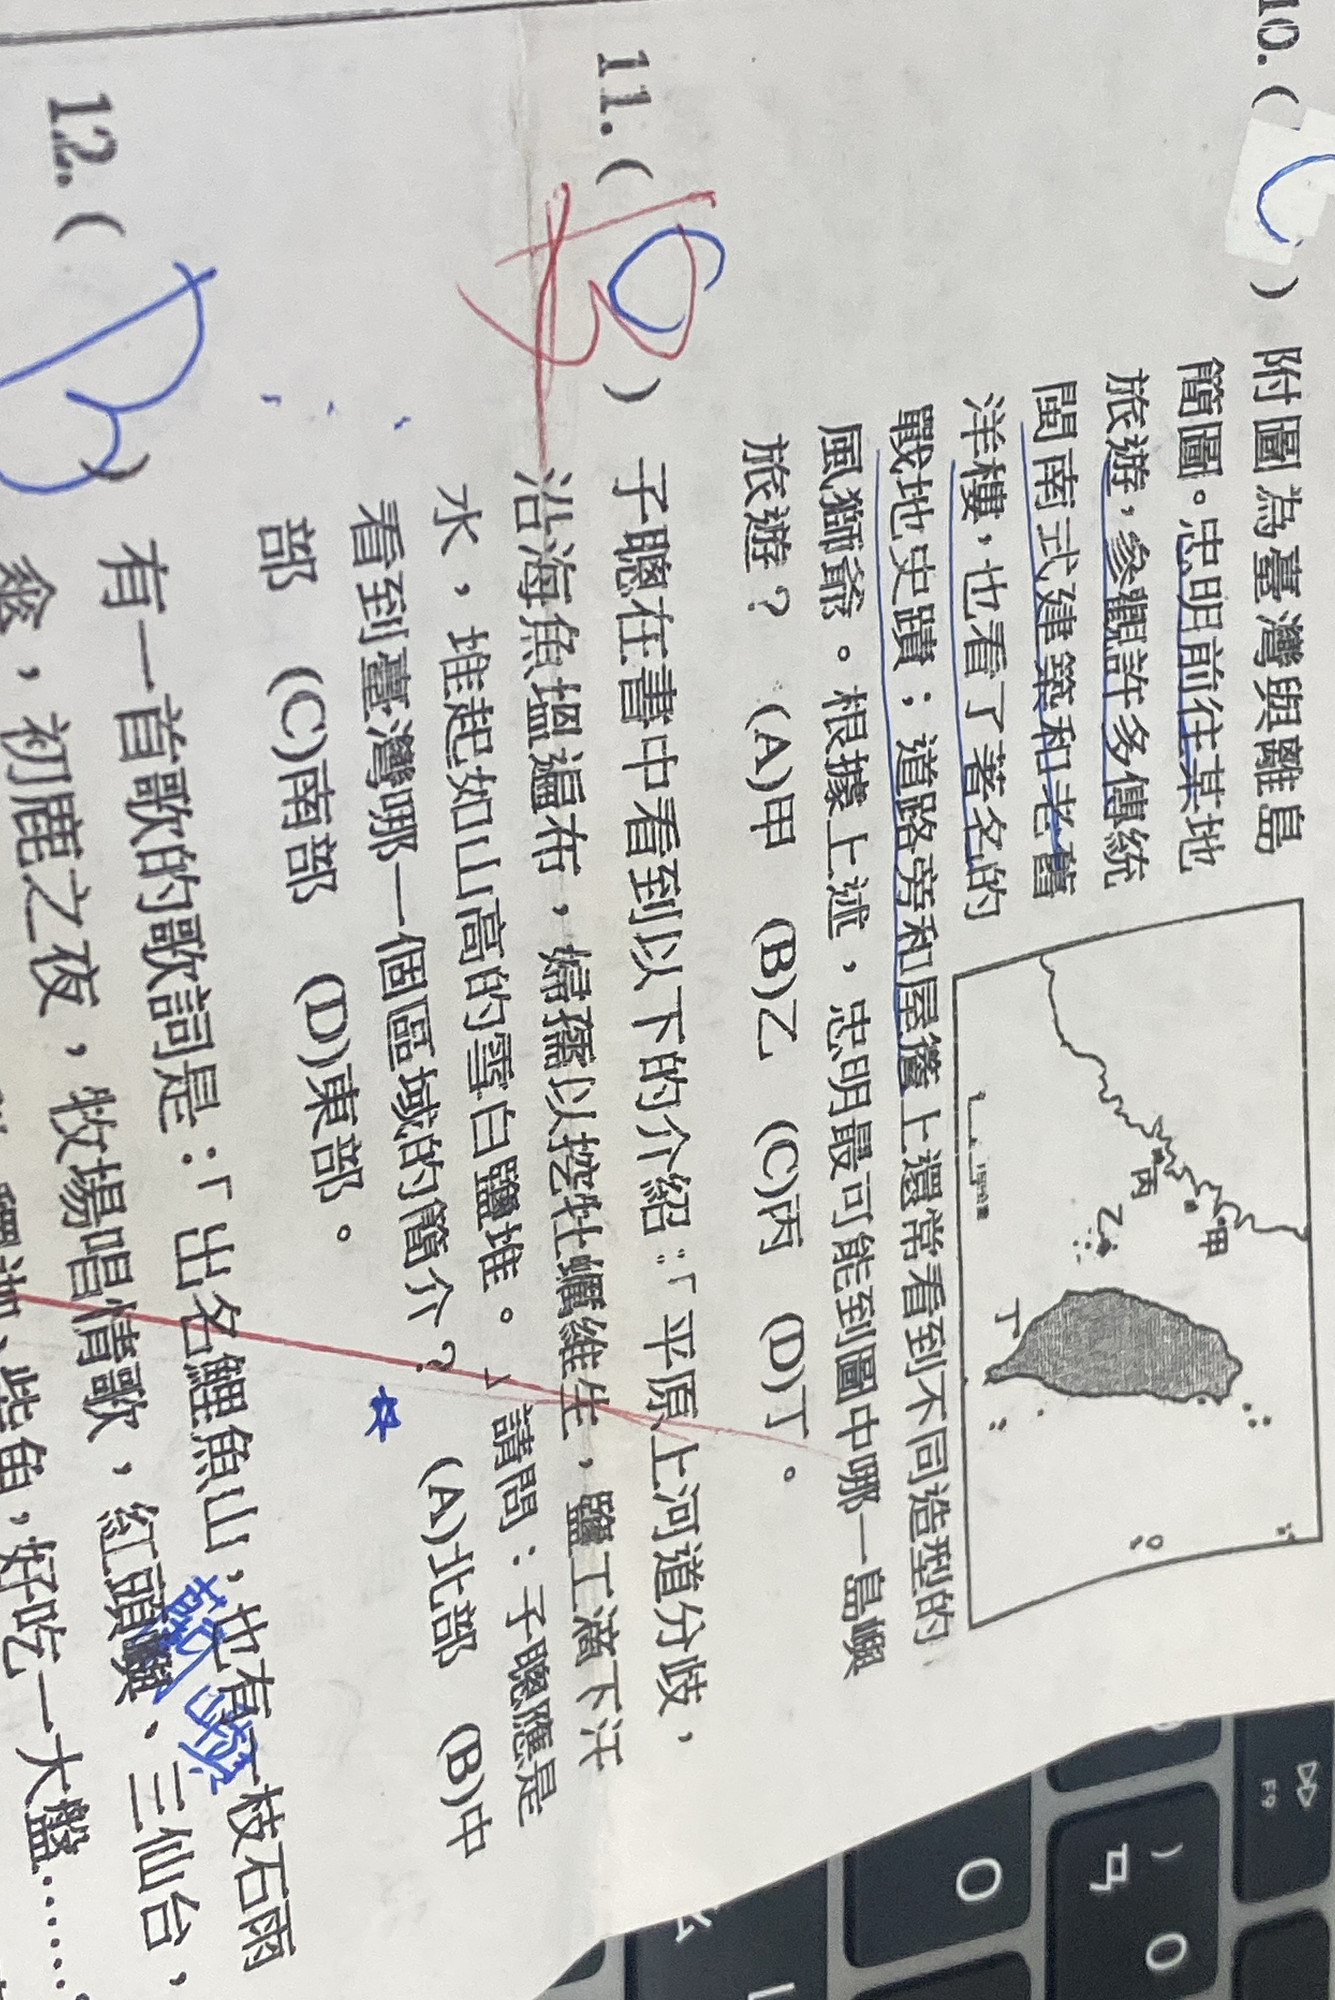 10. ( C ) 附圖為臺灣與離島
簡圖。忠明前往某地
旅遊，參觀許多傳統
閩南式建築和老舊
洋樓，也看了著名的
戰地史蹟；道路旁和屋簷上還常看到不同造型的
風獅爺。根據上述，忠明最可能到圖中哪一島嶼
旅遊？ (A)甲 (B)乙 (C)丙 (D)丁。
甲
丙
乙
丁
11. ( B ) 子聰在書中看到以下的介紹：「平原上河道分歧，
沿海魚塭遍布，婦孺以挖牡蠣維生，鹽工滴下汗
水，堆起如山高的雪白鹽堆。」請問：子聰應是
看到臺灣哪一個區域的簡介？ (A)北部 (B)中
部 (C)南部 (D)東部。
12. ( B ) 有一首歌的歌詞是：「出名鯉魚山，也有一枝石雨
傘，初鹿之夜，牧場唱情歌，紅頭嶼、三仙台，
柴魚，好吃一大盤……
F9
ㄢ
0
O